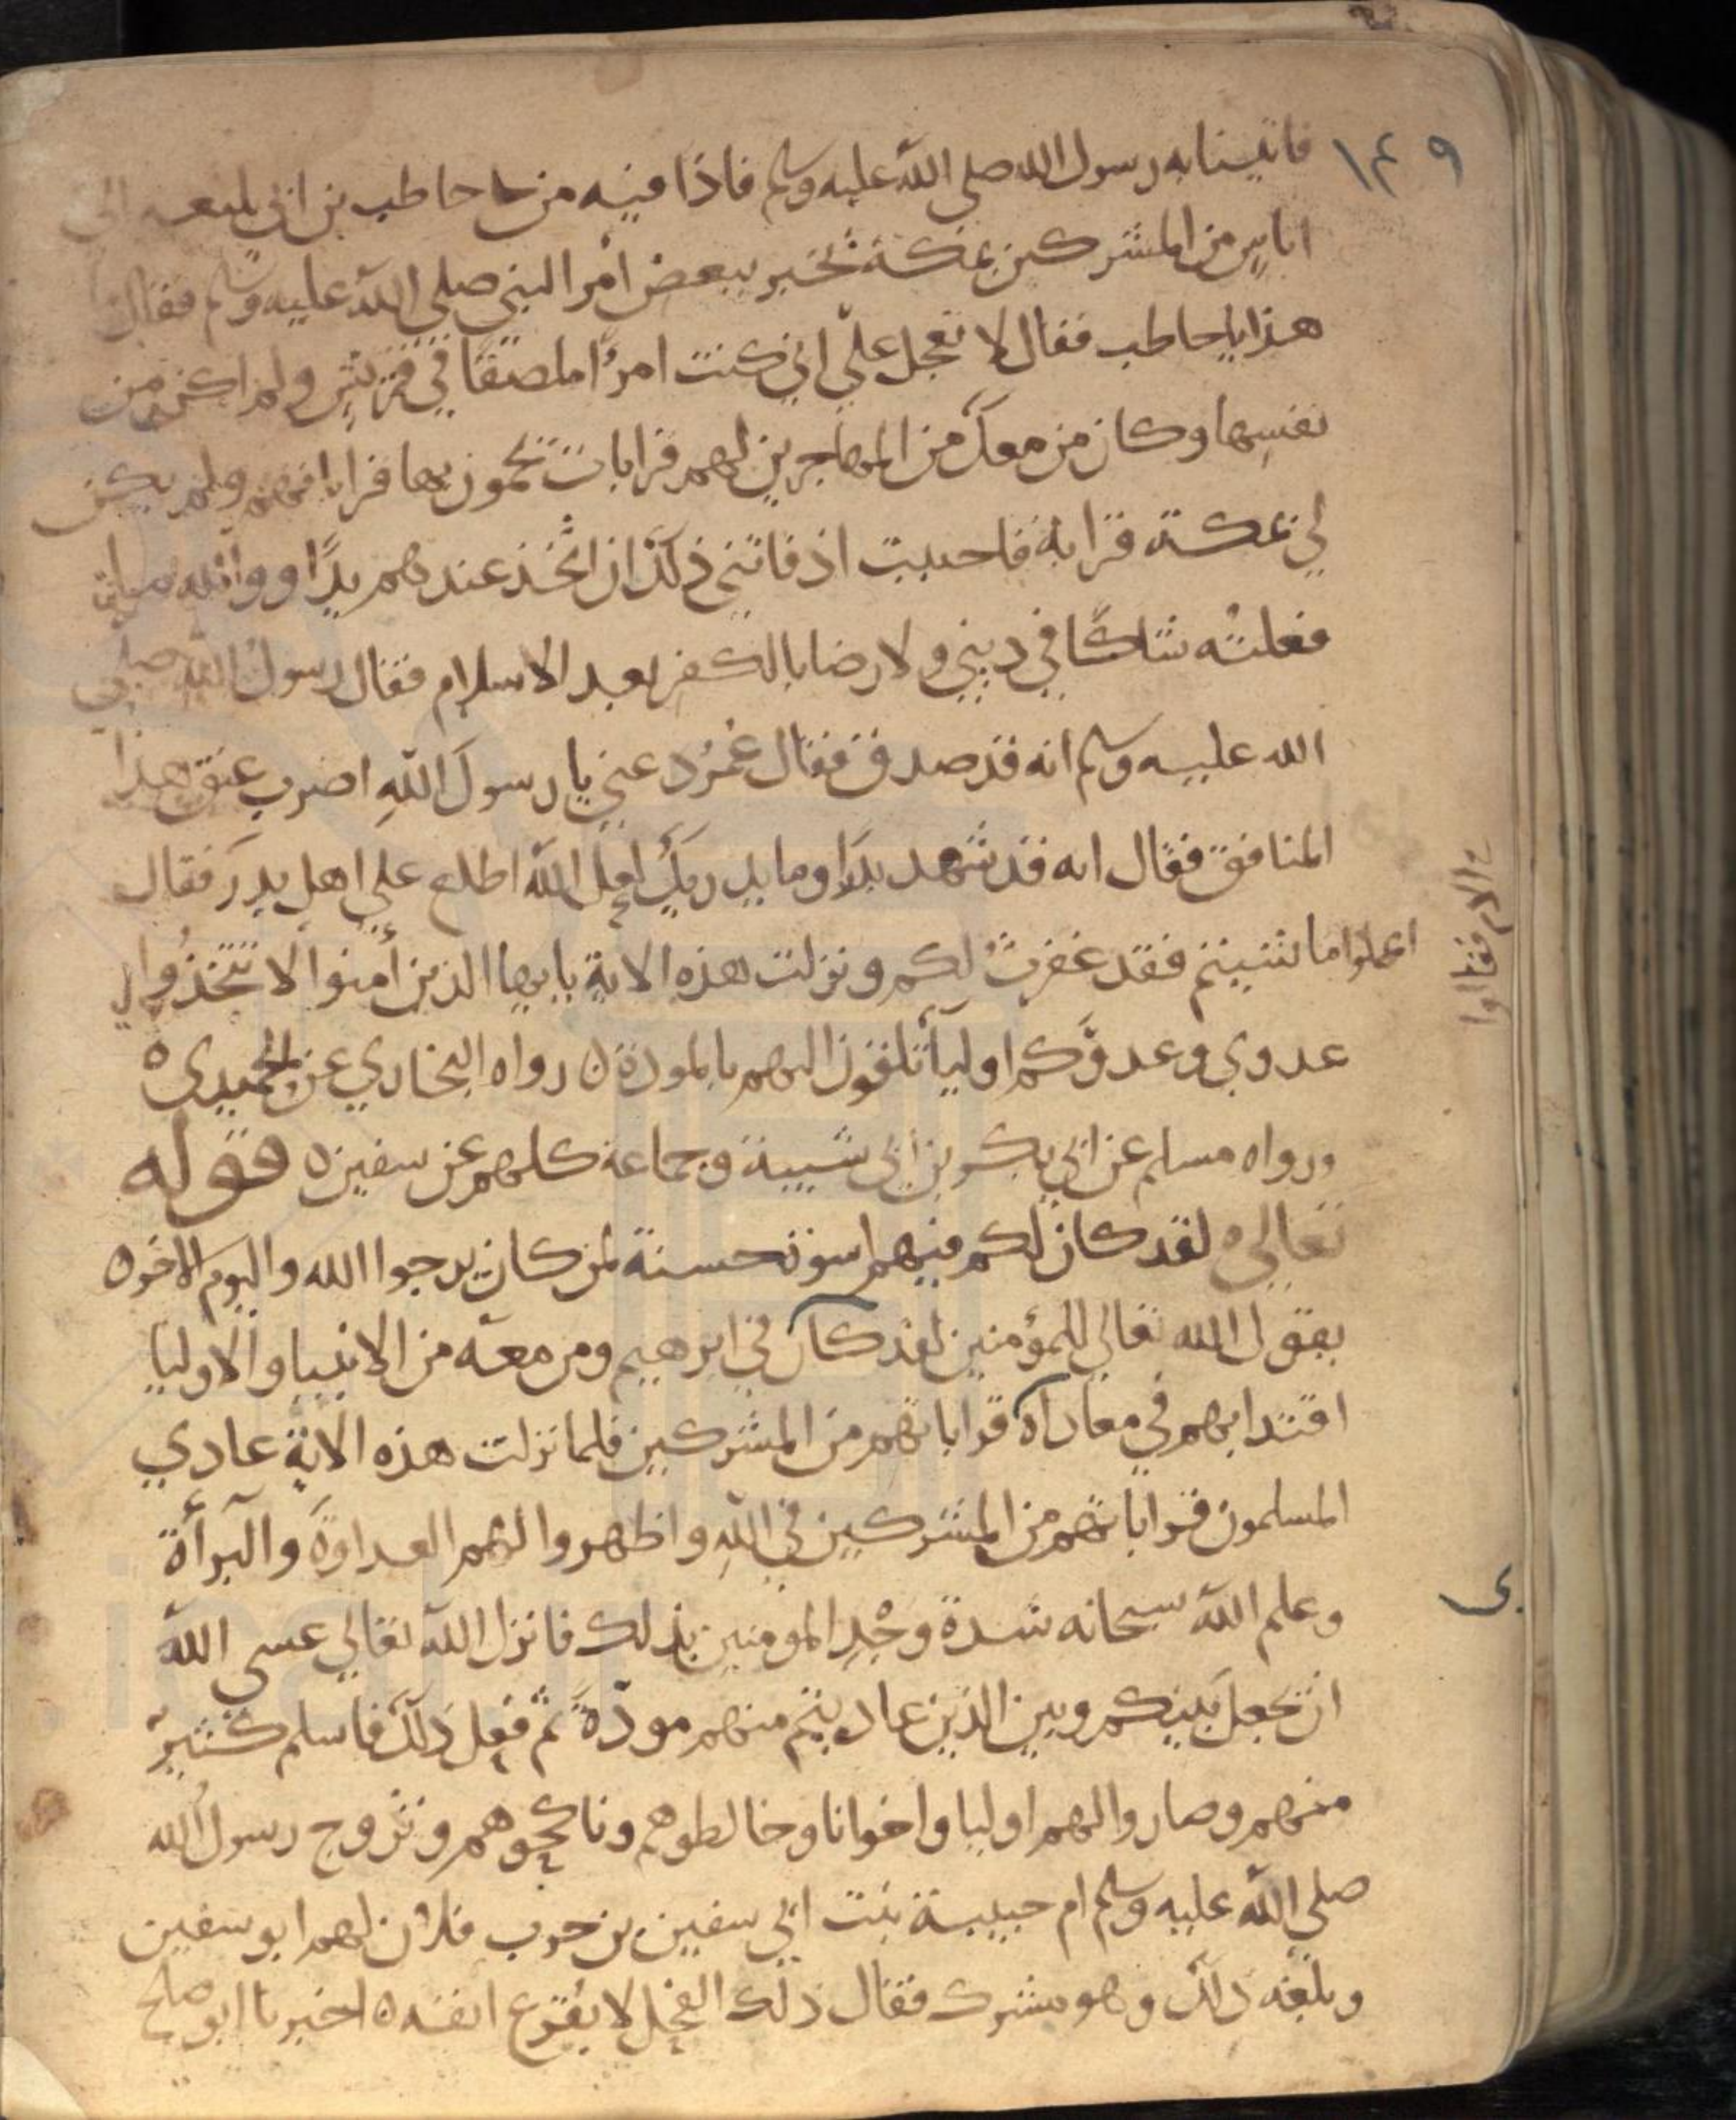 ١٤٩
فاتينا به رسول الله صلى الله عليه وسلم فاذا فيه من حاطب بن ابي بلتعه الى
اناسٍ من المشركين بمكة يخبر ببعض امر النبي صلى الله عليه وسلم فقال ما
هذا يا حاطب فقال لا تعجل عليّ اني كنت امرءًا ملصقًا في قريش ولم اكن من
نفسِها وكان من معك من المهاجرين لهم قرابات يحمون بها قراباتهم ولم يكن
لي بمكة قرابة فاحببت اذ فاتني ذلك ان اتخذ عندهم يدًا ووالله ما
فعلته شاكًا في ديني ولا رضا بالكفر بعد الاسلام فقال رسول الله صلى
الله عليه وسلم انه قد صدق فقال عُمَرُ دعني يا رسولَ اللهِ اضرب عنق هذا
المنافق فقال انه قد شهد بدرًا وما يدريك لعل الله اطلع على اهل بدر فقال
اعملوا ما شيتم فقد غفرتُ لكم ونزلت هذه الاية يايها الذين أمنوا لا تتخذوا
عدوي وعدوَّكم اوليآ تلقون اليهم بالمودة ٥ رواه البخاري عن الحميدي ٥
ورواه مسلم عن ابي بكر بن أبي شيبة وجماعة كلهم عن سفين ٥ قوله
تعالى ٥ لقد كان لكم فيهم اسوة حسنة لمن كان يرجوا الله واليوم الاخر ٥
يقول الله تعالى للمؤمنين لقد كان في ابرهيم ومن معه من الانبيا والاوليا
اقتدا بهم في معاداة قراباتهم من المشركين فلما نزلت هذه الاية عادي
المسلمون قراباتهم من المشركين في اللهِ واظهروا لهم العداوةَ والبرأة
وعلم الله سبحانه شدة وجْدِ المومنين بذلك فانزل الله تعالى عسى الله
ان يجعل بينكم وبين الذين عاديتم منهم مودّةً ثم فعل ذلك فاسلم كثيرٌ
منهم وصاروا لهم اوليا واخوانا وخالطوهم وناكحوهم وتزوج رسولُ الله
صلى الله عليه وسلم ام حبيبة بنت ابي سفين بن حرب فلان لهم ابو سفين
وبلغه ذلك وهو مشرك فقال ذلك الفحل لا يقرع انفه ٥ اخبرنا ابو صلح